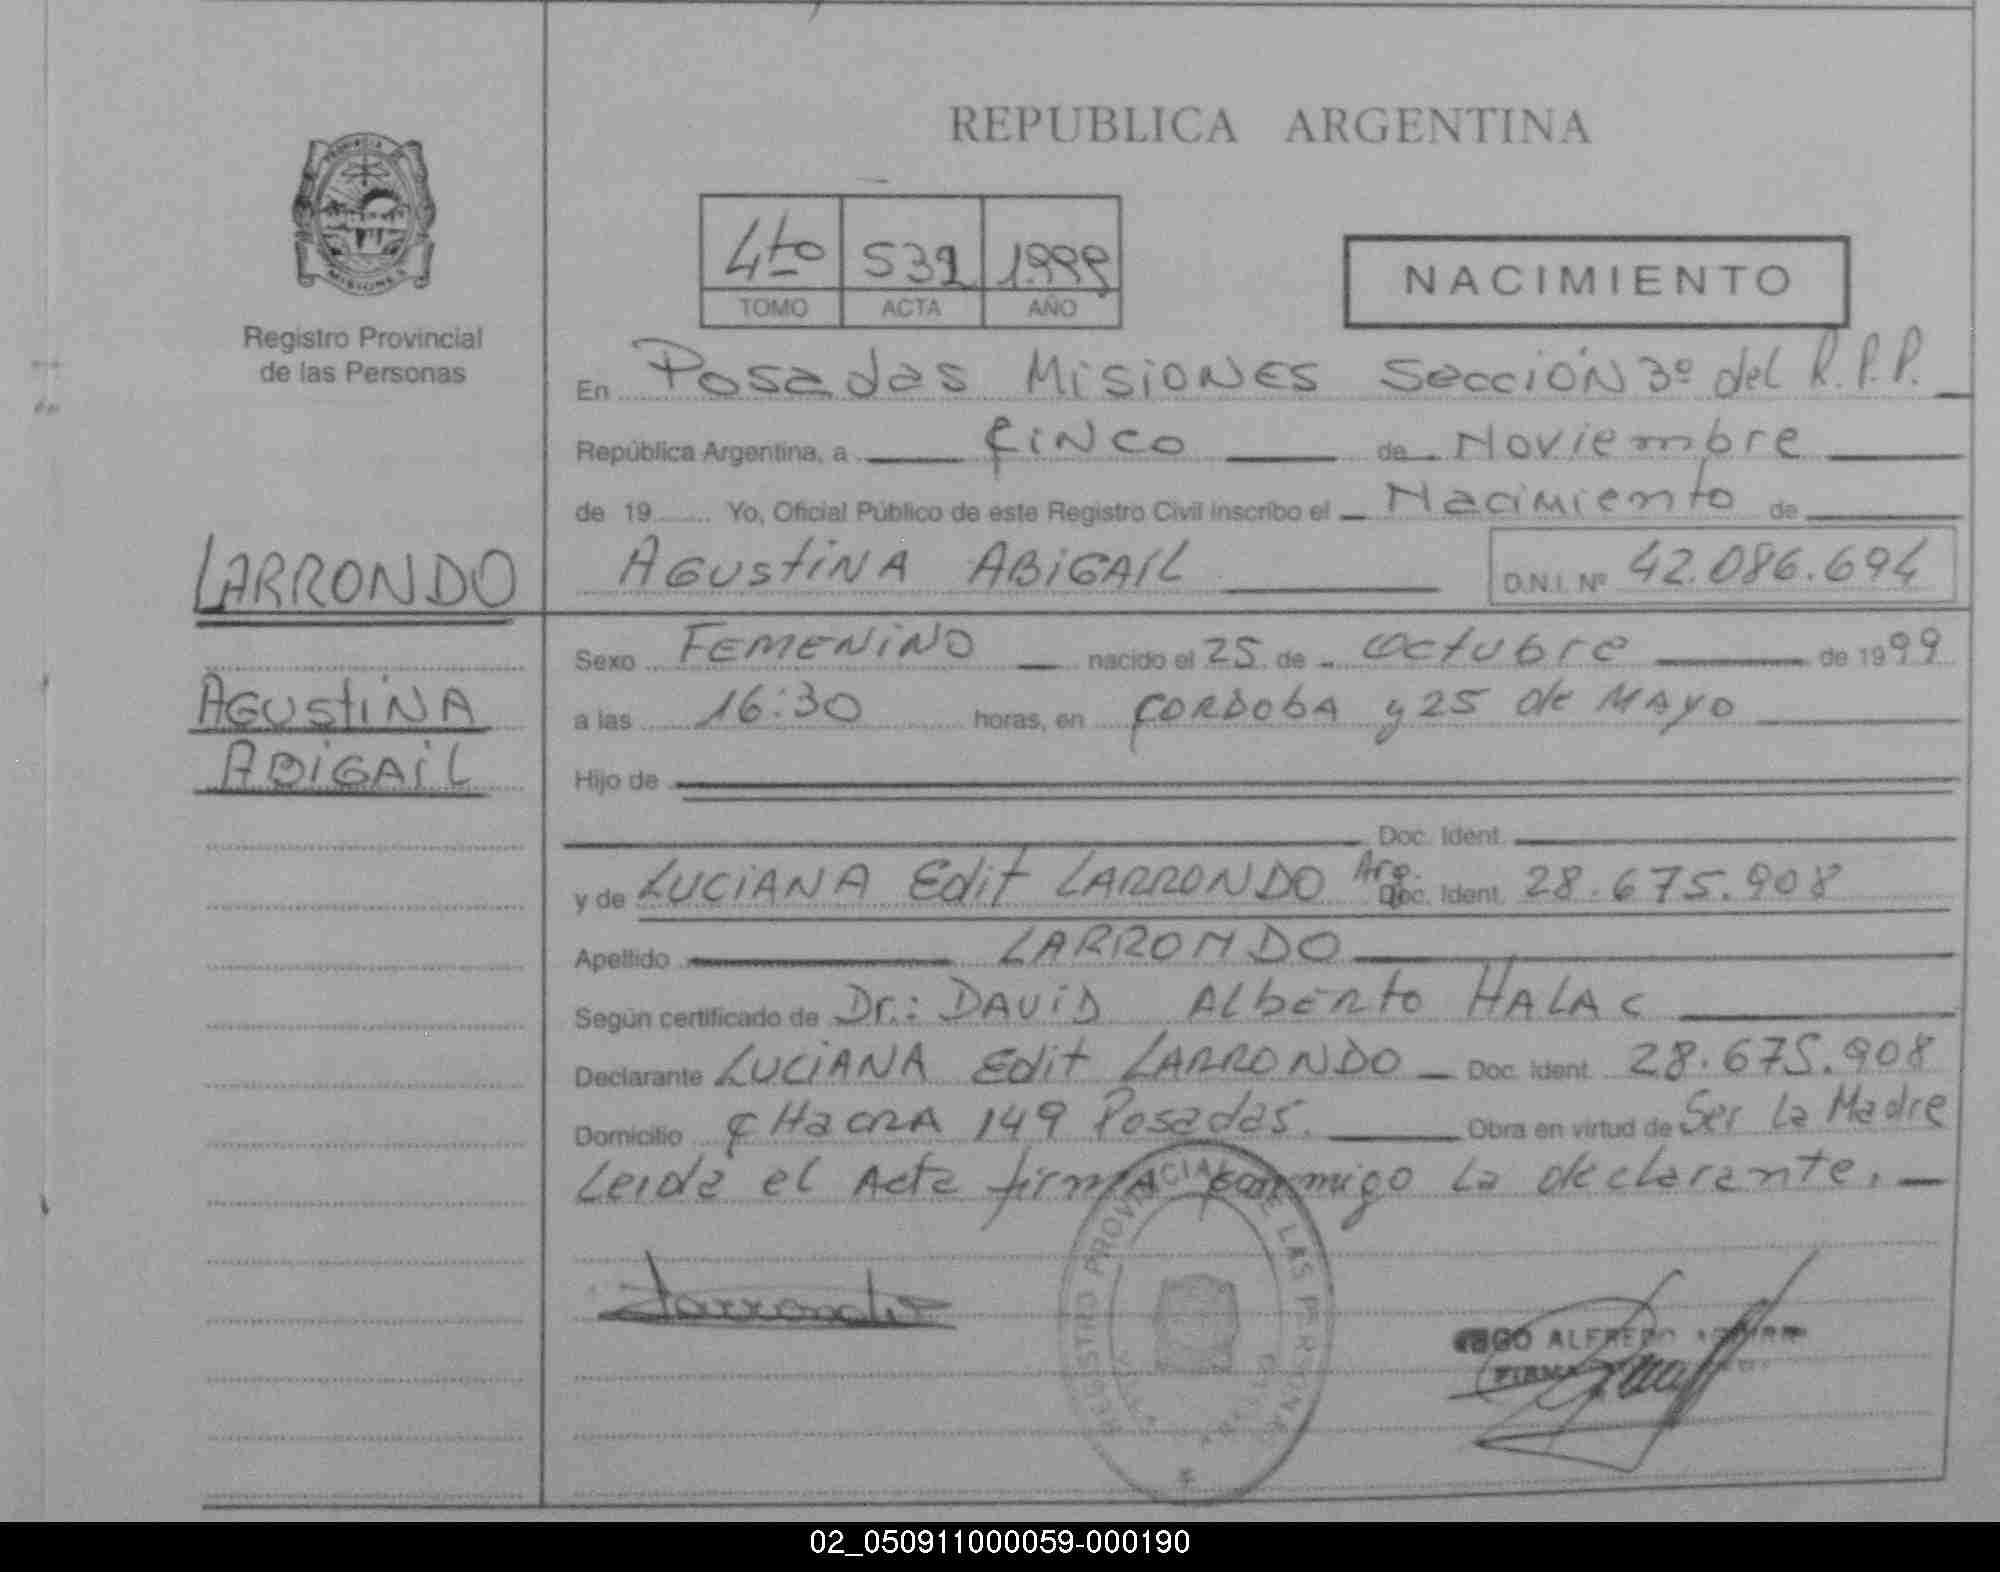 REPUBLICA ARGENTINA
4to 532 1.999
TOMO ACTA AÑO
NACIMIENTO
PROVINCIA DE
MISIONES
Registro Provincial
de las Personas
LARRONDO
AGUStiNA
ABiGAiL
En Posadas MisiONES Sección 3º del R.P.P.
República Argentina, a CiNCO de Noviembre
de 19 Yo, Oficial Público de este Registro Civil inscribo el Nacimiento de
AGUStiNA ABiGAiL D.N.I. Nº 42.086.694
Sexo FEMENiNO nacido el 25 de Octubre de 1999
a las 16:30 horas, en CORDObA y 25 de MAYO
Hijo de
Doc. Ident.
y de LUCiANA Edit LARRONDO Arg. Doc. Ident. 28.675.908
Apellido LARRONDO
Según certificado de Dr.: DAViD ALbERto HALAC
Declarante LUCiANA Edit LARRONDO Doc. Ident. 28.675.908
Domicilio CHaCRA 149 Posadas. Obra en virtud de Ser La Madre
Leida el Acta firma conmigo La declarante.
REGISTRO PROVINCIAL DE LAS PERSONAS
Larrondo
ALFREDO
02_050911000059-000190